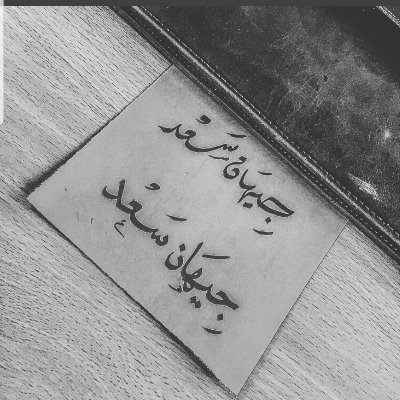 جيهان سَعْد
جيهَان سَعْد